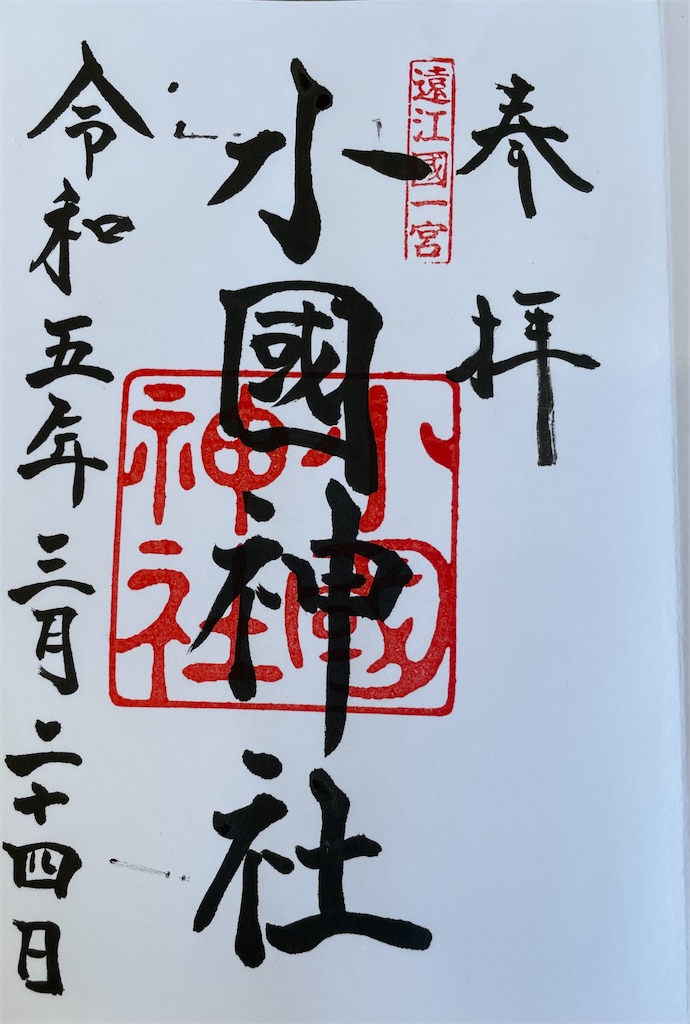 奉拝
遠江國一宮
小國神社
小國
神社
令和五年三月二十四日